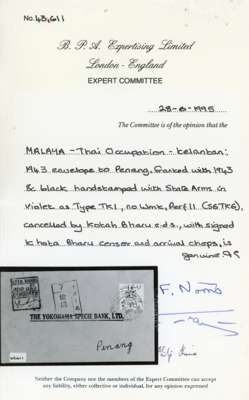 No. 43,611
B. P. A. Expertising Limited
London - England
EXPERT COMMITTEE
28-6-1995
The Committee is of the opinion that the
MALAYA - Thai Occupation - Kelantan:
1943 envelope to Penang, franked with 1943
8c black handstamped with State Arms in
violet as Type TK1, no wmk, Perf.11 (SGTK6),
cancelled by Kotah Bharu c.d.s., with signed
Khota Bharu censor and arrival chops, is
genuine
THE YOKOHAMA SPECIE BANK, LTD.
Penang
43611
Neither the Company nor the members of the Expert Committee can accept
any liability, either collective or individual, for any opinion expressed